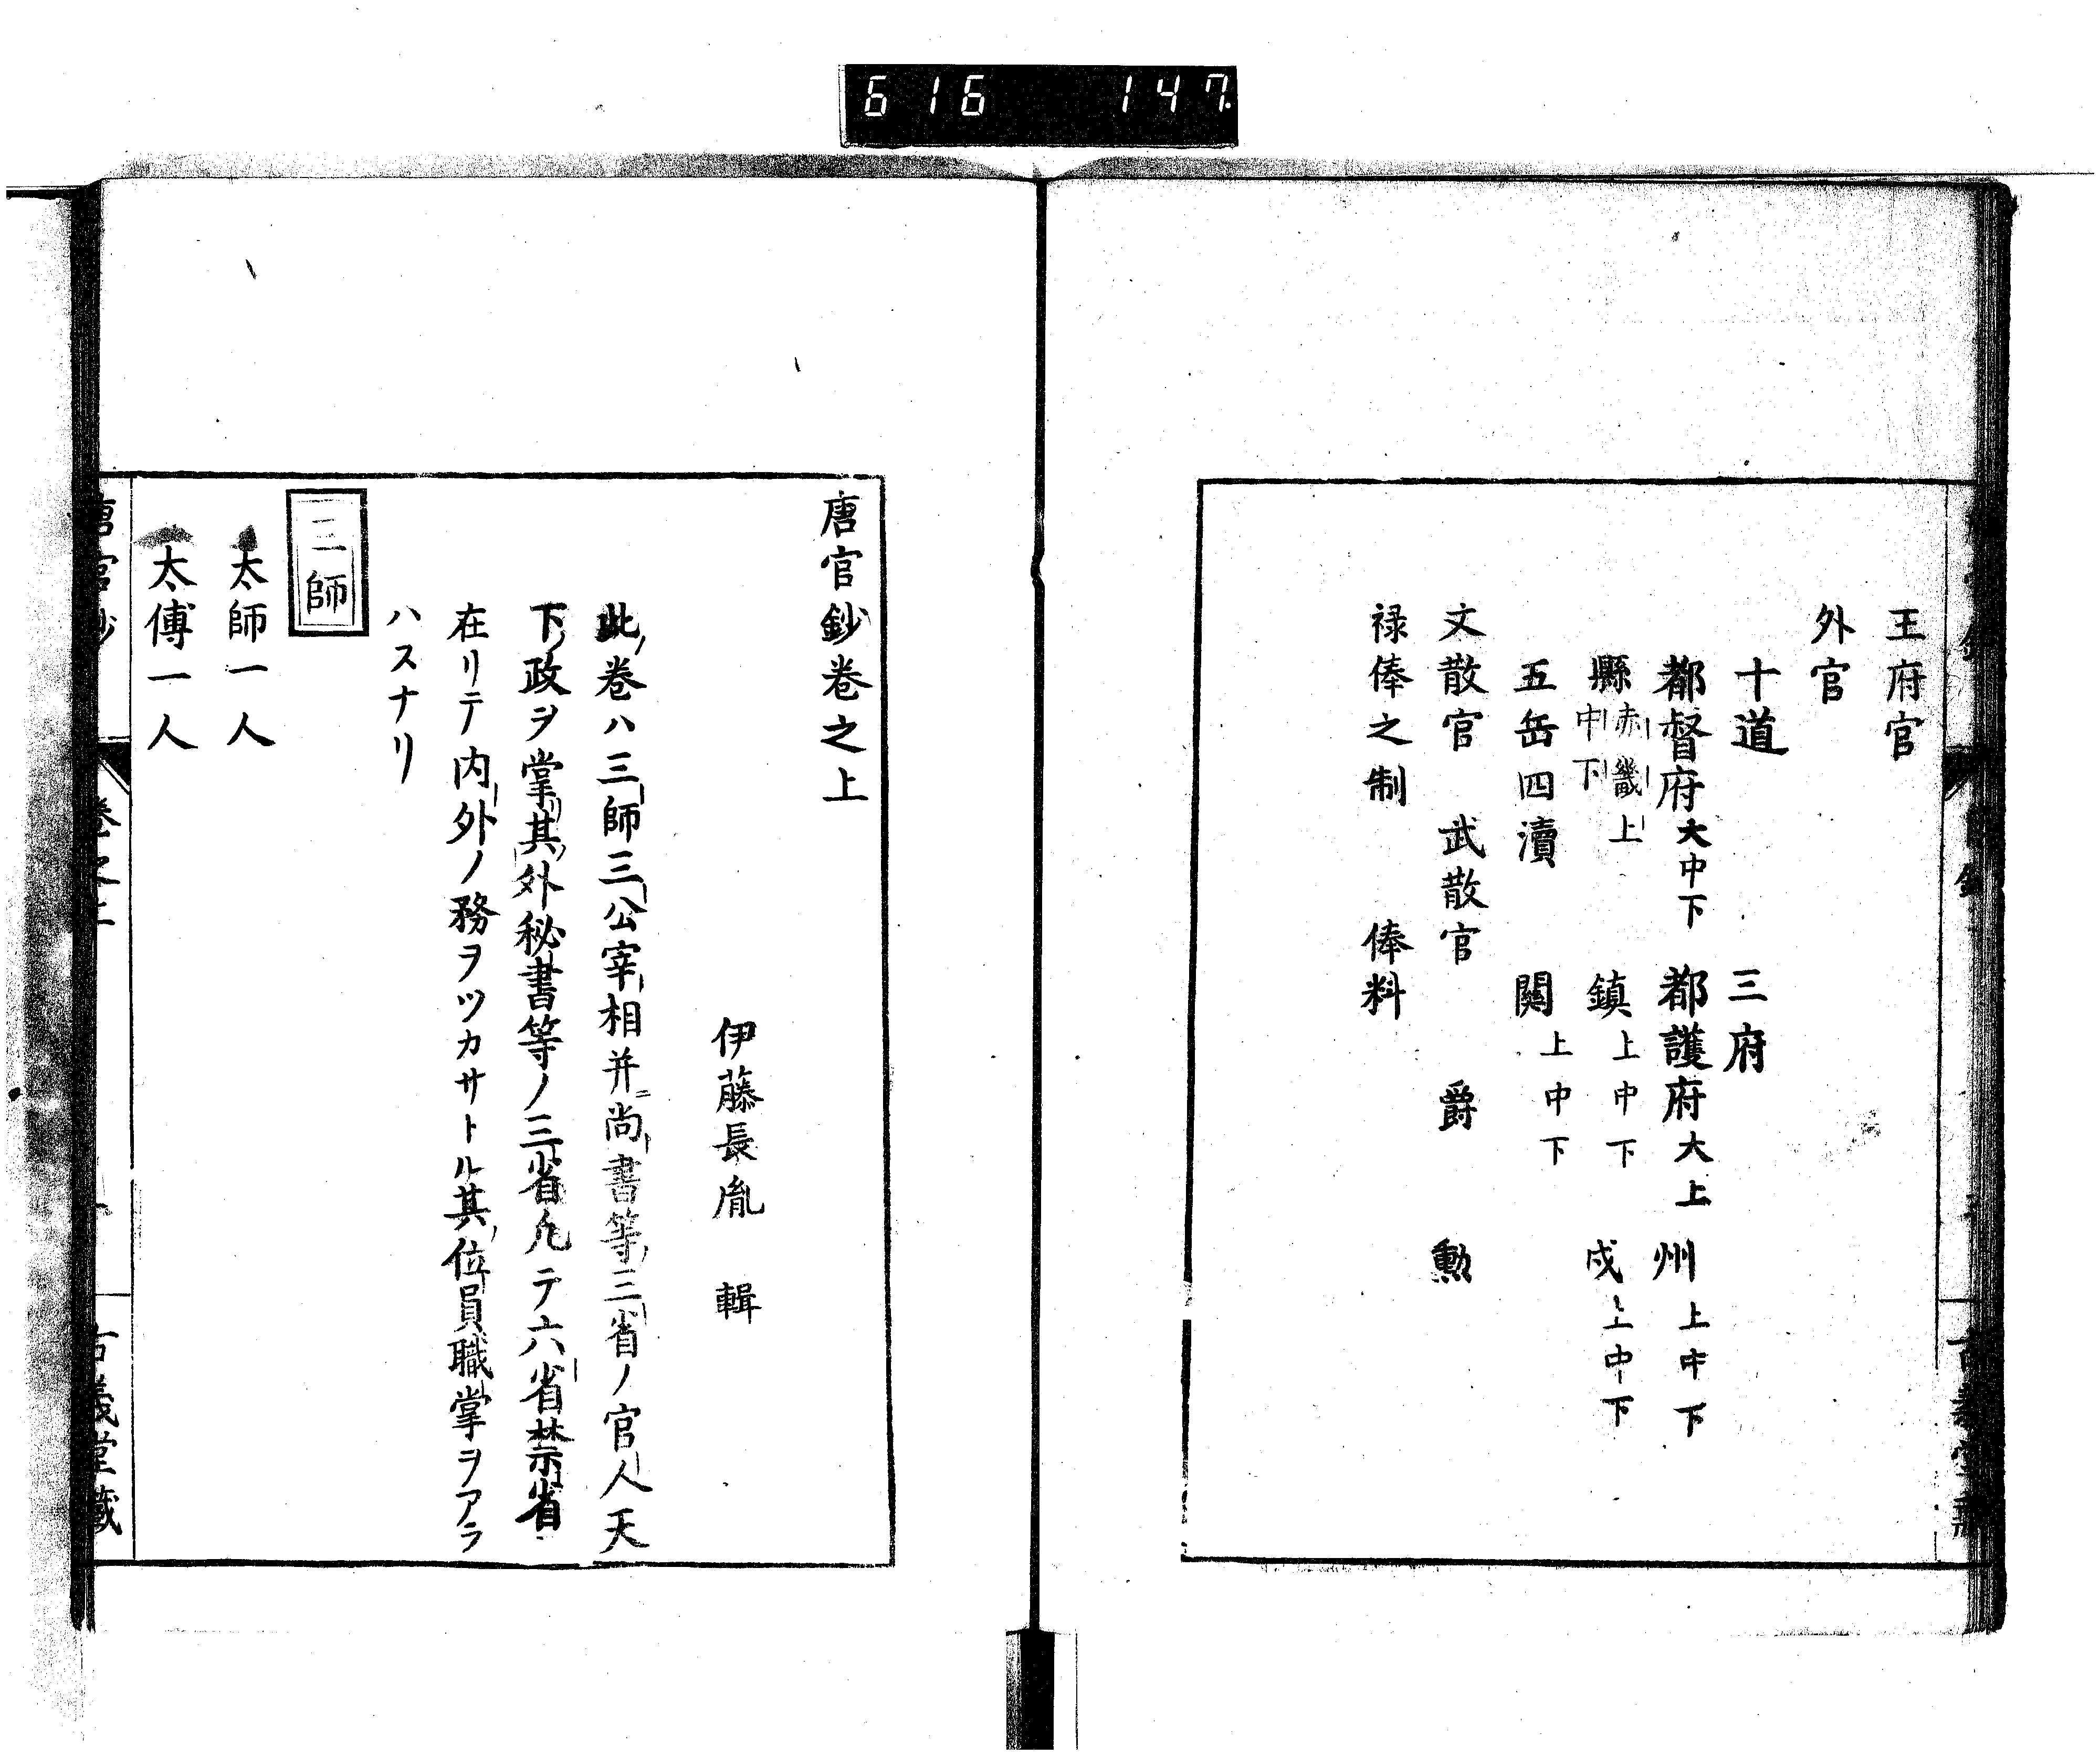 616 147
王府官
外官
十道 三府
都督府大中下 都護府大上 州上中下
縣赤畿上中下 鎮上中下 戍上中下
五岳四瀆 關上中下
文散官 武散官 爵 勳
禄俸之制 俸料
唐官鈔卷之上
伊藤長胤 輯
此卷ハ三師三公宰相并ニ尚書等三省ノ官人天
下ノ政ヲ掌其外秘書等ノ三省凡テ六省禁省
在リテ内外ノ務ヲツカサトル其位員職掌ヲアラ
ハスナリ
三師
太師一人
太傅一人
唐官鈔 卷之上 古義堂藏